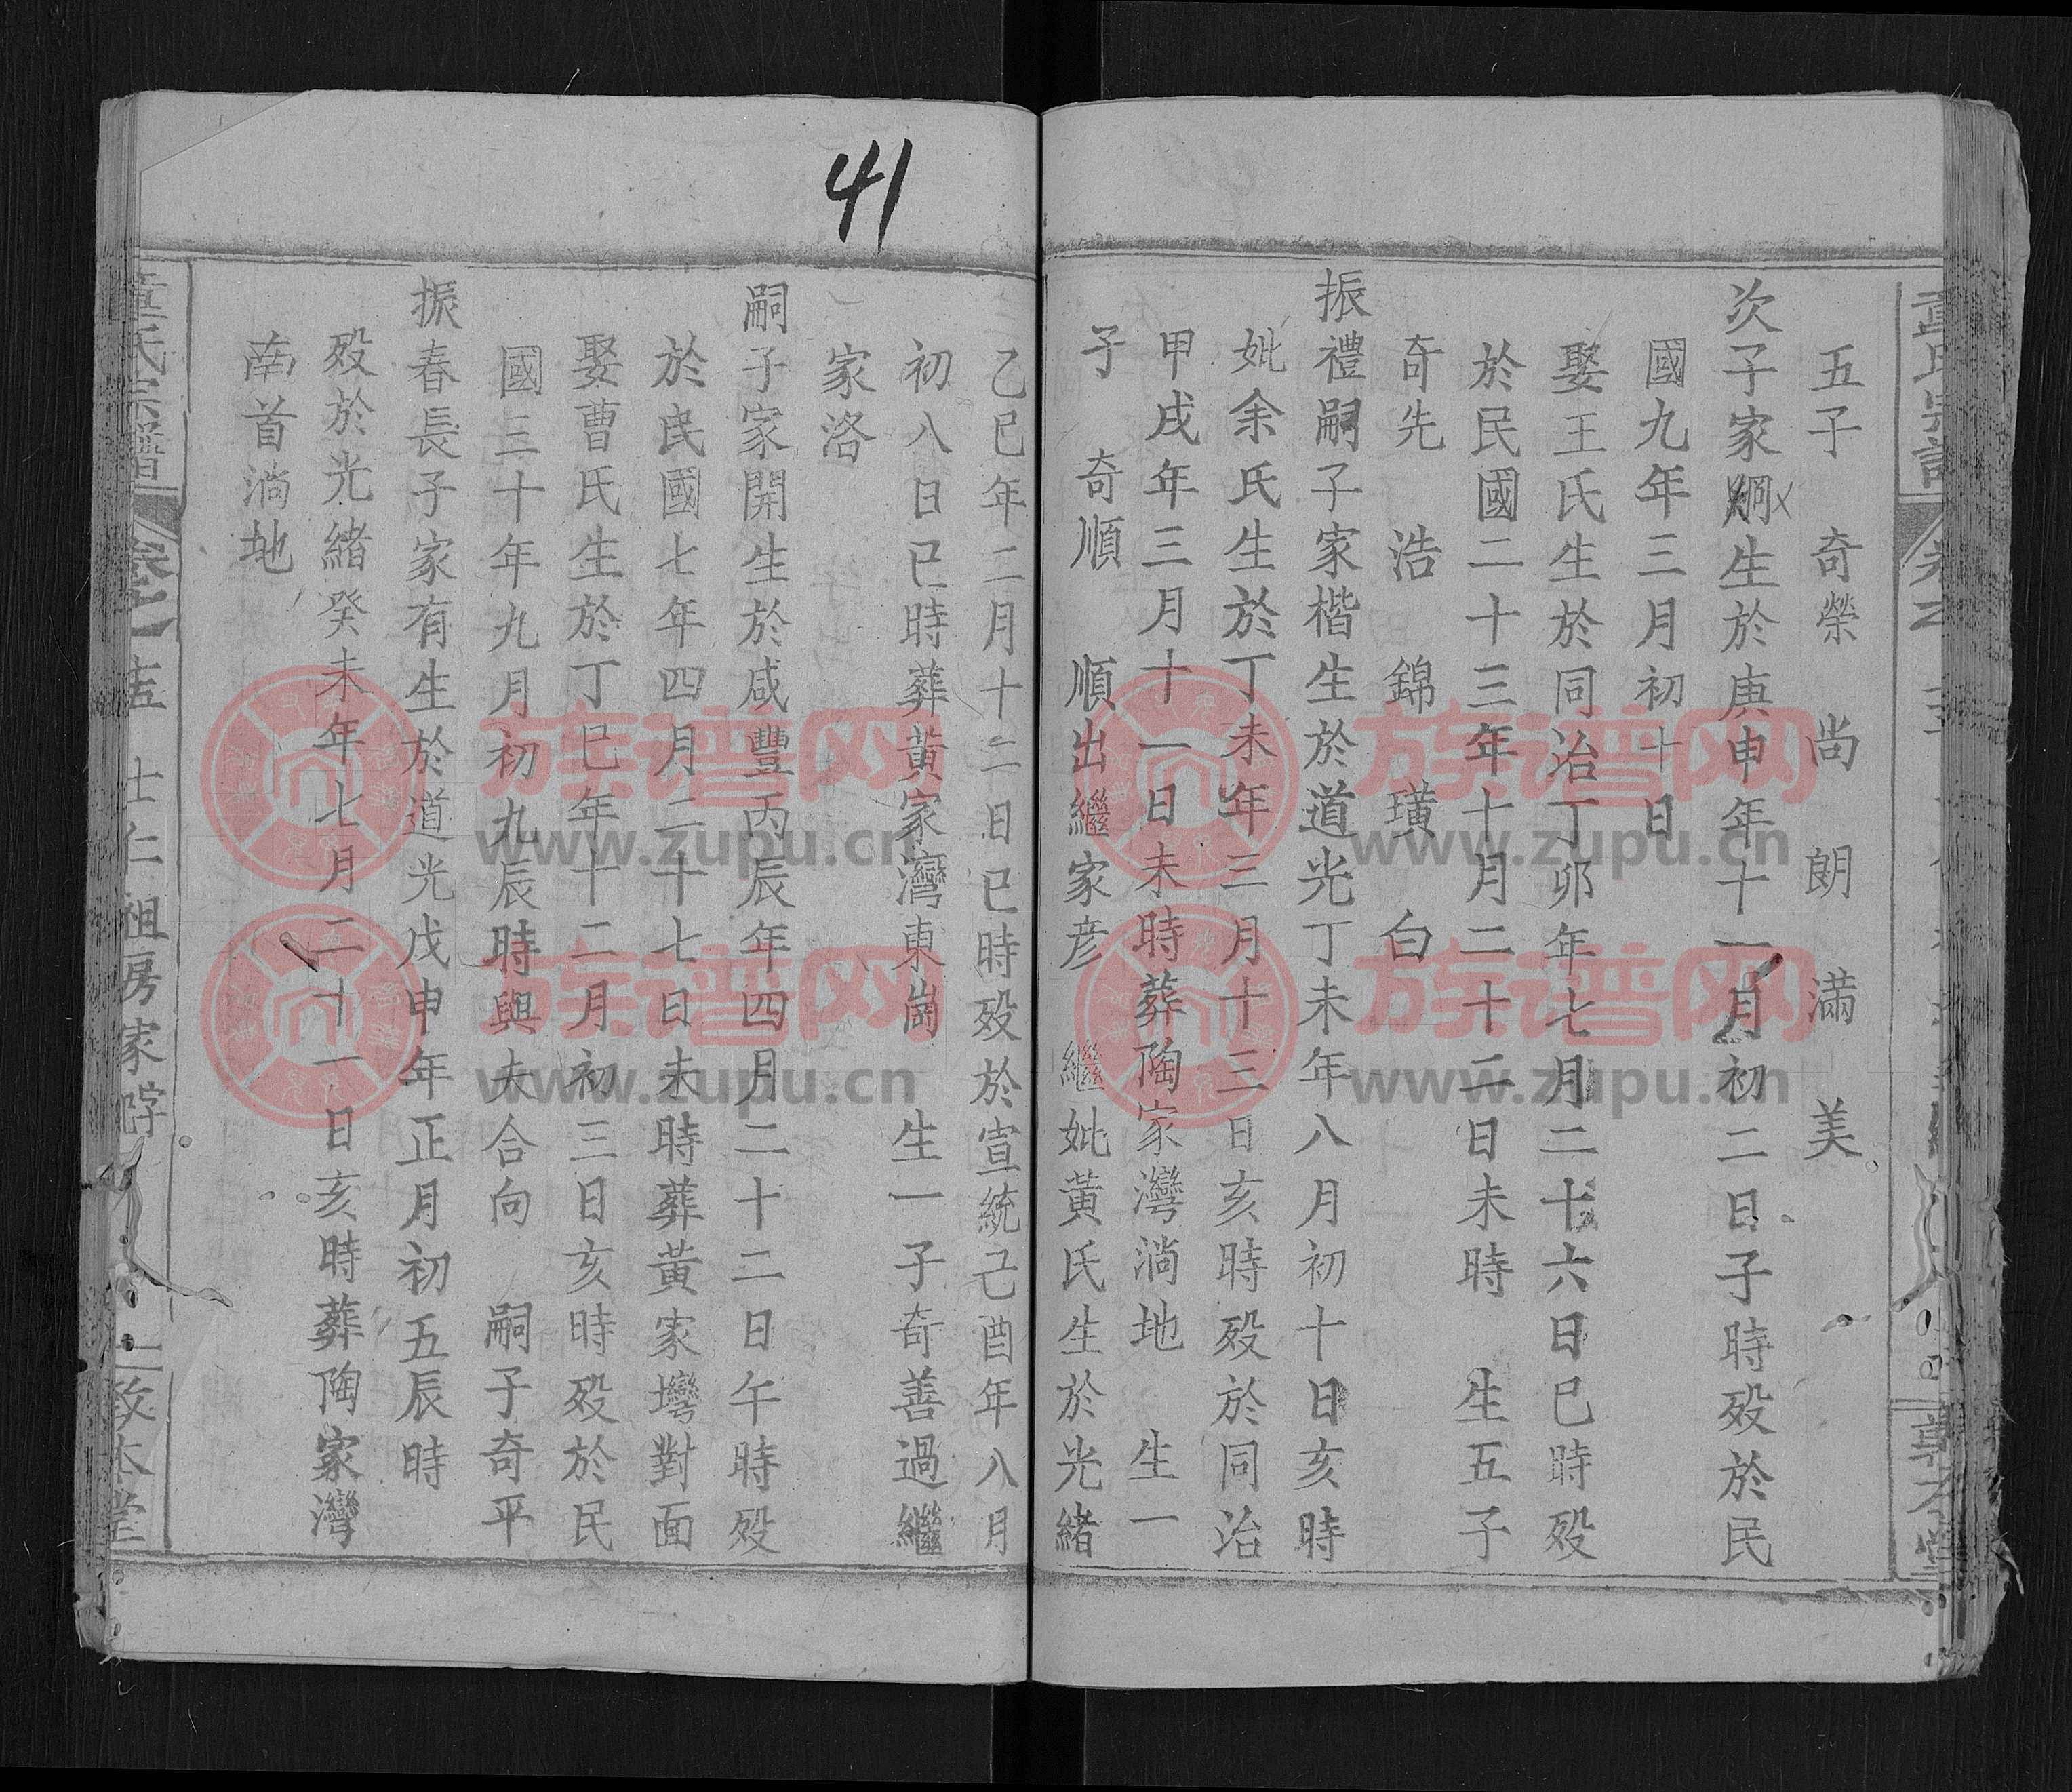 41
五子 奇榮 尚 朗 滿 美
次子家綱生於庚申年十一月初二日子時殁於民
國九年三月初十日
娶王氏生於同治丁卯年七月二十六日巳時殁
於民國二十三年十月二十二日未時 生五子
奇先 浩 錦 璜 白
振禮嗣子家楷生於道光丁未年八月初十日亥時
妣余氏生於丁未年三月十三日亥時殁於同治
甲戌年三月十一日未時葬陶家灣淌地 生一
子 奇順 順出繼家彦 繼妣黃氏生於光緒
乙巳年二月十二日巳時殁於宣統己酉年八月
初八日巳時葬黃家灣東崗 生一子奇善過繼
家洛
嗣子家開生於咸豐丙辰年四月二十二日午時殁
於民國七年四月二十七日未時葬黃家塆對面
娶曹氏生於丁巳年十二月初三日亥時殁於民
國三十年九月初九辰時與夫合向 嗣子奇平
振春長子家有生於道光戊申年正月初五辰時
殁於光緒癸未年七月二十一日亥時葬陶家灣
南首淌地
童氏宗譜 卷 士仁祖房家 敦本堂
族谱网
www.zupu.cn
族谱网
www.zupu.cn
族谱网
www.zupu.cn
族谱网
www.zupu.cn